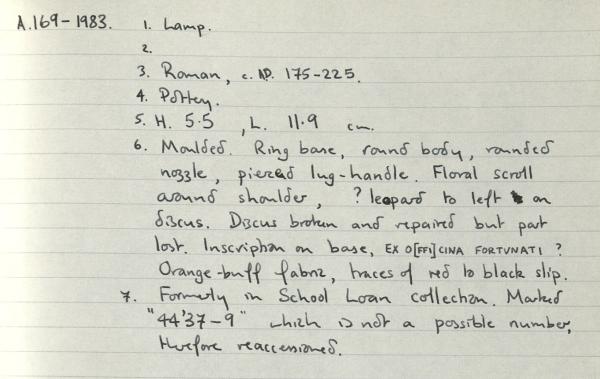 A.169-1983. 1. Lamp.
2.
3. Roman, c. AD. 175-225.
4. Pottery.
5. H. 5.5 , L. 11.9 cm.
6. Moulded. Ring base, round body, rounded
nozzle, pierced lug-handle. Floral scroll
around shoulder, ? leopard to left on
discus. Discus broken and repaired but part
lost. Inscription on base, EX O[FFI]CINA FORTVNATI ?
Orange-buff fabric, traces of red to black slip.
7. Formerly in School Loan collection. Marked
"44'37-9" which is not a possible number,
therefore reaccessioned.